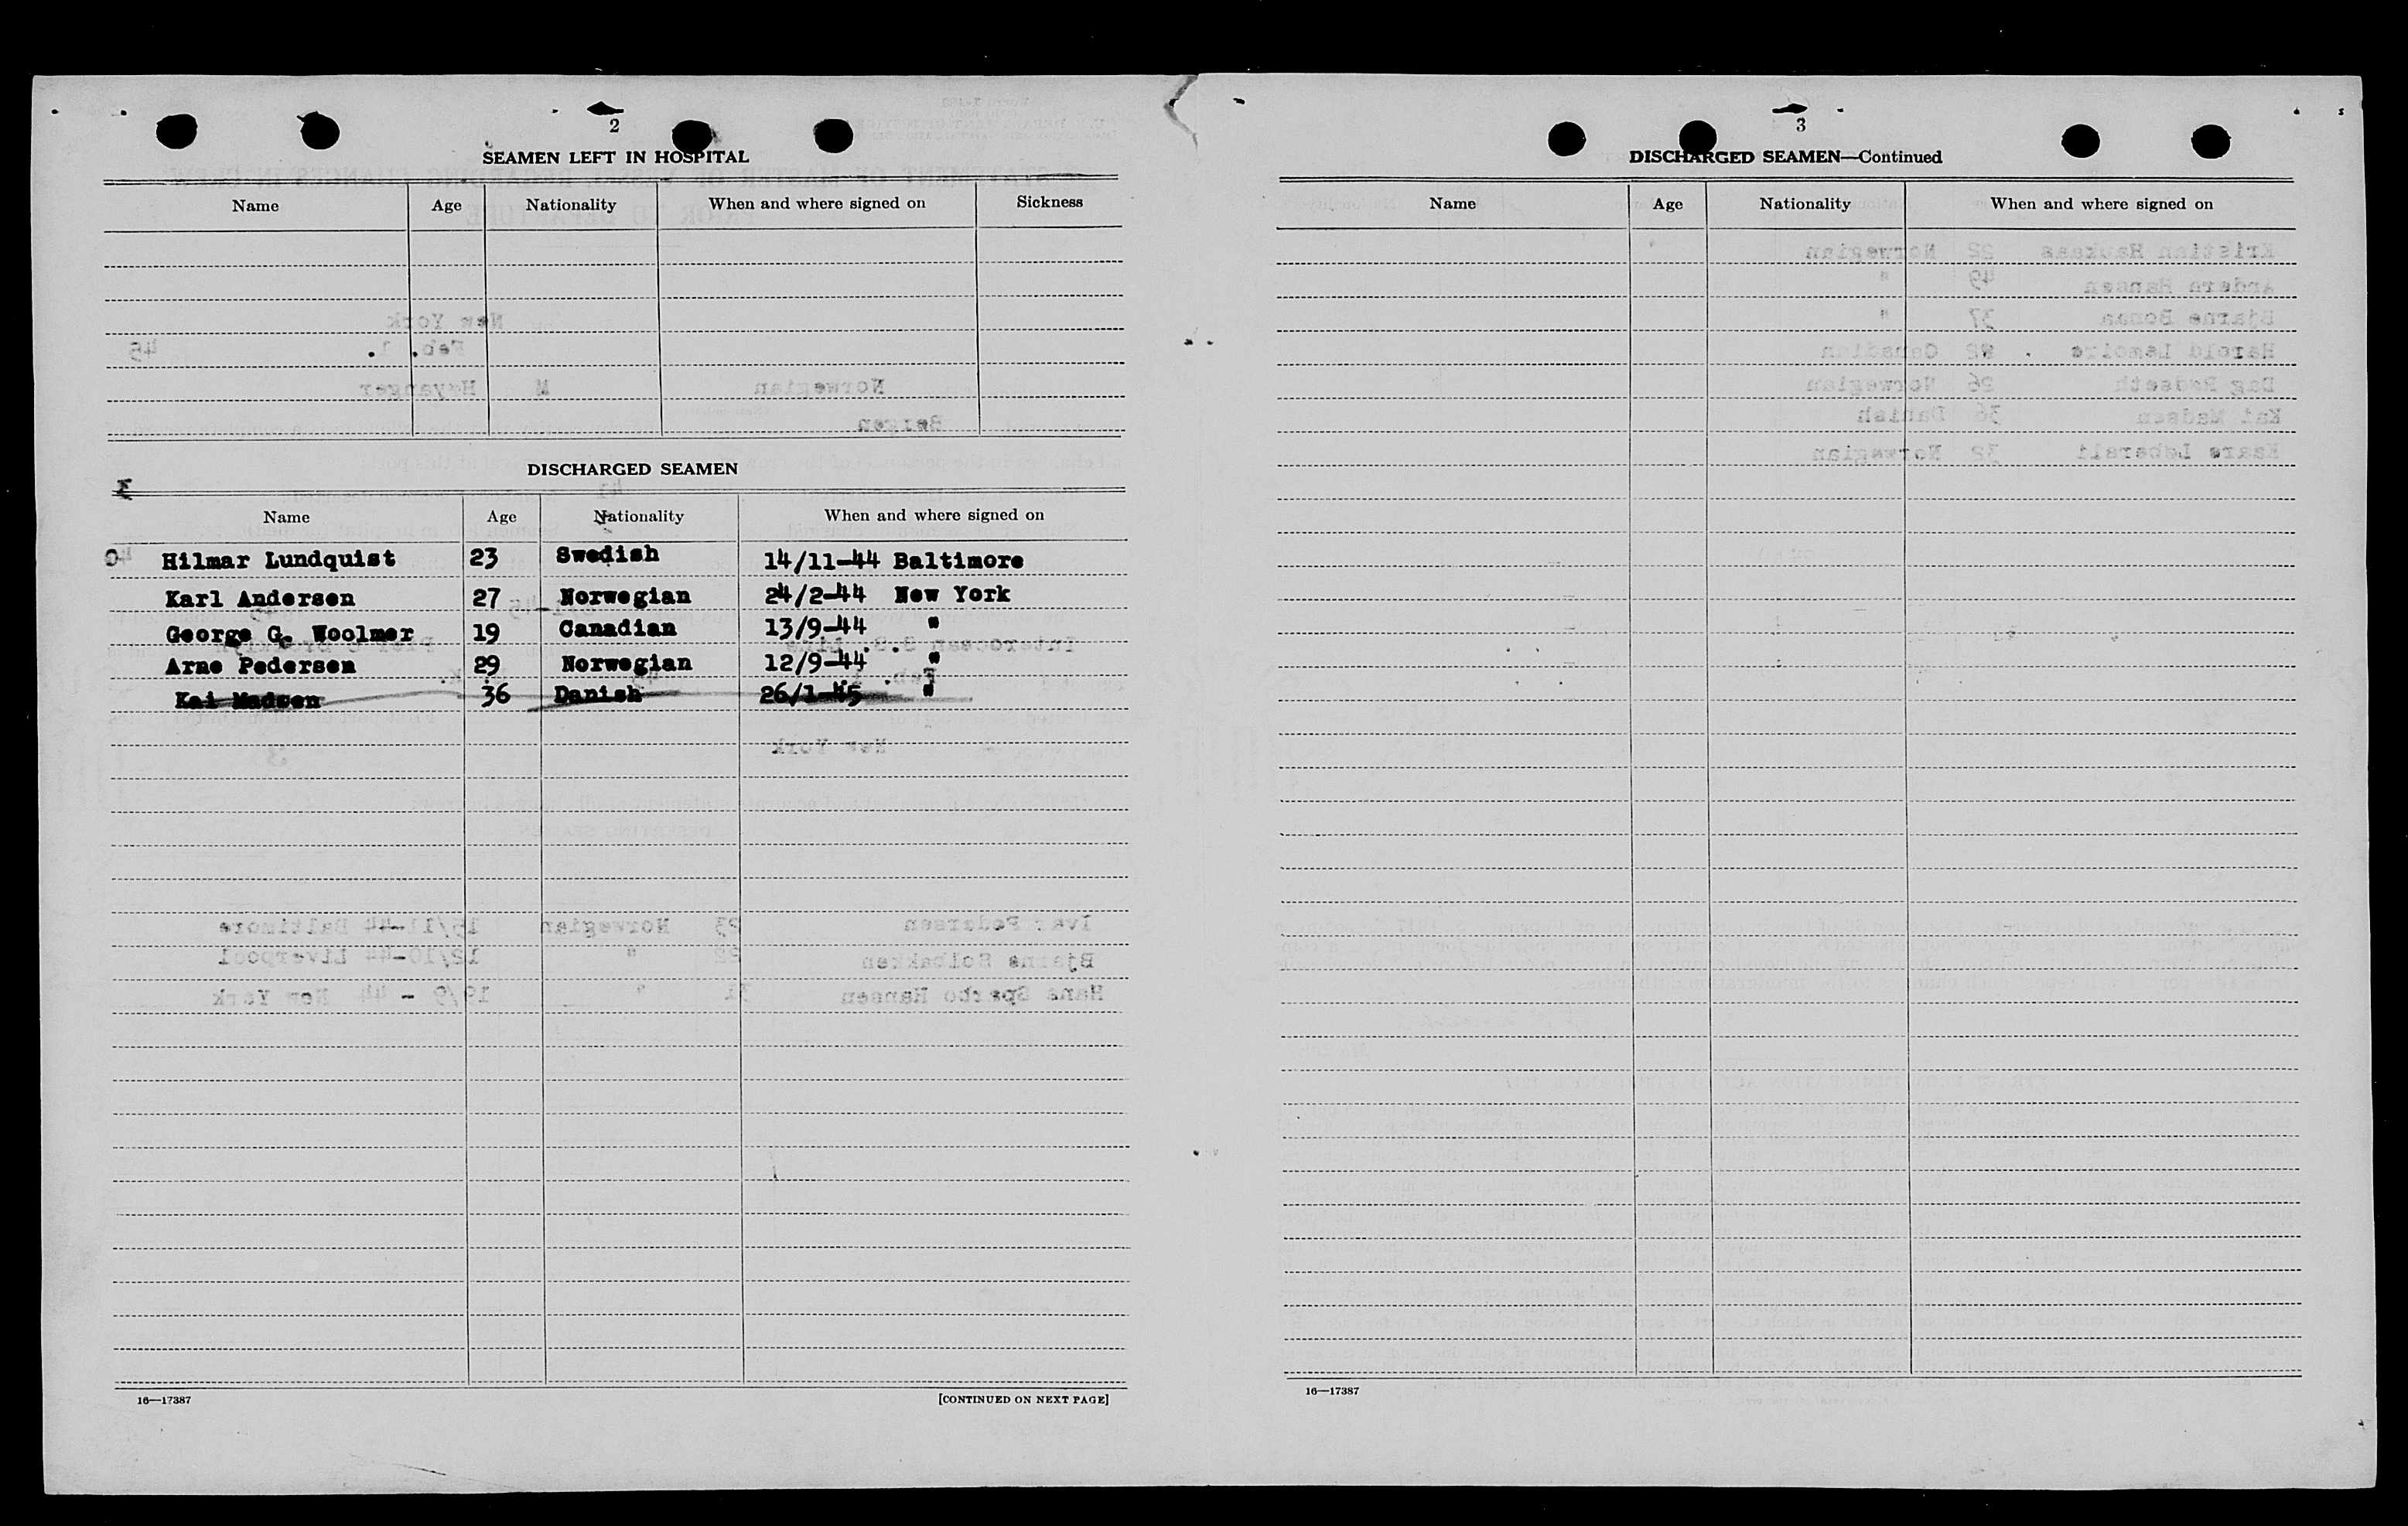 2
SEAMEN LEFT IN HOSPITAL
Name Age Nationality When and where signed on Sickness
DISCHARGED SEAMEN
Name Age Nationality When and where signed on
Hilmar Lundquist 23 Swedish 14/11-44 Baltimore
Karl Andersen 27 Norwegian 24/2-44 New York
George G. Woolmer 19 Canadian 13/9-44 "
Arne Pedersen 29 Norwegian 12/9-44 "
Kai Madsen 36 Danish 26/1-45 "
16—17387 [CONTINUED ON NEXT PAGE]
3
DISCHARGED SEAMEN—Continued
Name Age Nationality When and where signed on
16—17387